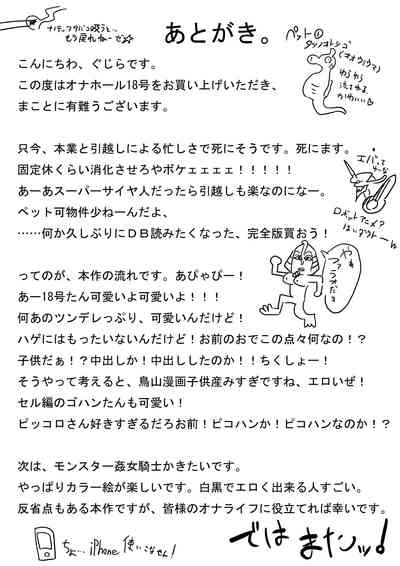 ナチュラルタバコ吸うと…
もう戻れねーぜ☆
あとがき。
ペットの
タツノオトシゴ
(オウウマ)
ゆらゆら
流てれよ
かわいい
こんにちわ、ぐじらです。
この度はオナホール18号をお買い上げいただき、
まことに有難うございます。
只今、本業と引越しによる忙しさで死にそうです。死にます。
固定休くらい消化させろやボケェェェェ！！！！！
あーあスーパーサイヤ人だったら引越しも楽なのになー。
ペット可物件少ねーんだよ、
……何か久しぶりにＤＢ読みたくなった、完全版買おう！
エバって
ロボットアニメ？
はい、アウトーん
やぁ
ってのが、本作の流れです。あぴゃぴー！
あー18号たん可愛いよ可愛いよ！！！
何あのツンデレっぷり、可愛いんだけど！
ハゲにはもったいないんだけど！お前のおでこの点々何なの！？
子供だぁ！？中出しか！中出ししたのか！！ちくしょー！
そうやって考えると、鳥山漫画子供産みすぎですね、エロいぜ！
セル編のゴハンたんも可愛い！
ピッコロさん好きすぎるだろお前！ピコハンか！ピコハンなのか！？
次は、モンスター姦女騎士かきたいです。
やっぱりカラー絵が楽しいです。白黒でエロく出来る人すごい。
反省点もある本作ですが、皆様のオナライフに役立てれば幸いです。
ちょ…iPhone 使いこなせん！
では またッ！